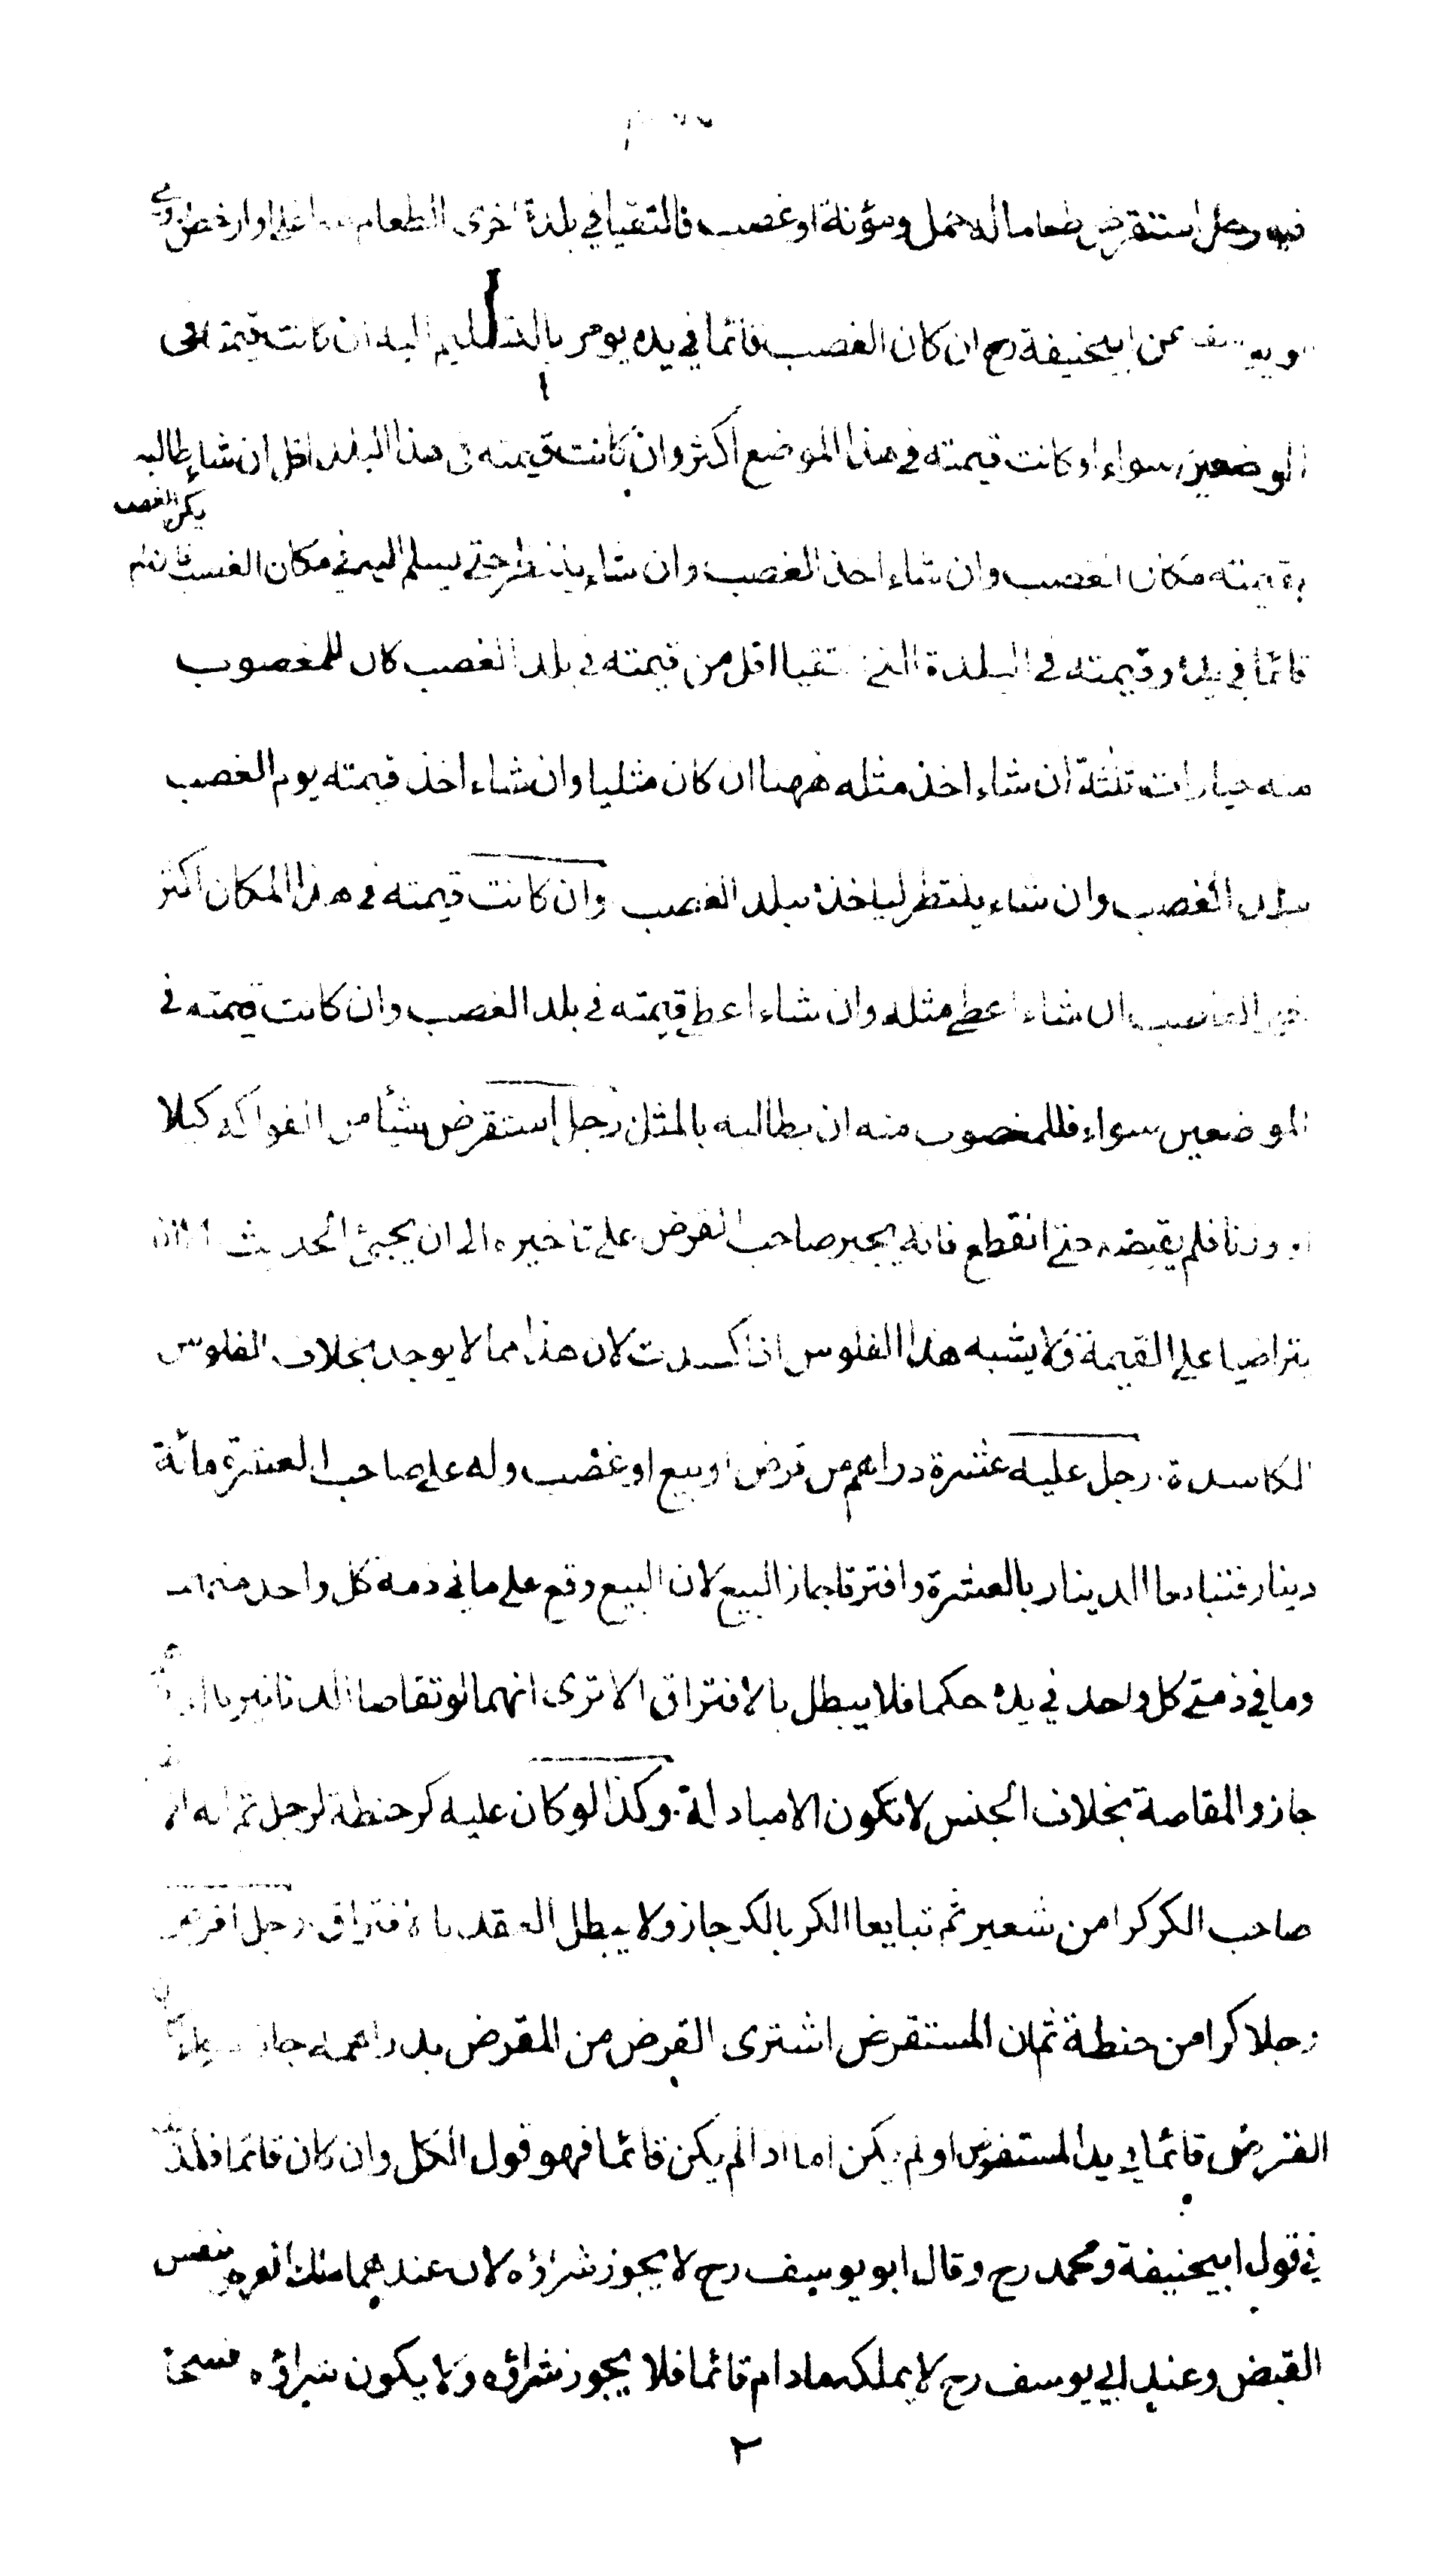 فيه رجل استقرض طعاما له حمل ومؤنة او غصب فالتقيا في بلدة اخرى الطعام اغلى او ارخص روى
ابو يوسف عن ابيحنيفة رح ان كان الغصب قائما في يده يومر بالتسليم اليه ان كانت قيمته في
الموضعين سواء او كانت قيمته في هذا الموضع اكثر وان كانت قيمته في هذا البلد اقل ان شاء طالبه
بقيمته مكان الغصب وان شاء اخذ الغصب وان شاء ينتظر حتى يسلم اليه في مكان الغصب فان لم يكن الغصب
قائما في يده وقيمته في البلدة التي التقيا اقل من قيمته في بلد الغصب كان للمغصوب
منه خيارات ثلثة ان شاء اخذ مثله ههنا ان كان مثليا وان شاء اخذ قيمته يوم الغصب
ببلد الغصب وان شاء ينتظر لياخذه ببلد الغصب وان كانت قيمته في هذا المكان اكثر
خير الغاصب ان شاء اعطى مثله وان شاء اعطى قيمته في بلد الغصب وان كانت قيمته في
الموضعين سواء فللمغصوب منه ان يطالبه بالمثل رجل استقرض شيأ من الفواكه كيلا
او وزنا فلم يقبضه حتى انقطع فانه يجبر صاحب القرض على تاخيره الى ان يجيئ الحديث الا ان
يتراضيا على القيمة ولا يشبه هذا الفلوس اذا كسدت لان هذا مما لا يوجد بخلاف الفلوس
الكاسدة رجل عليه عشرة دراهم من قرض او بيع او غصب وله على صاحب العشرة مائة
دينار فتبايعا الدينار بالعشرة وافترقا جاز البيع لان البيع وقع على ما في ذمة كل واحد منهما
وما في ذمتى كل واحد في يده حكما فلا يبطل بالافتراق الا ترى انهما لو تقاصا الدنانير
جاز والمقاصة بخلاف الجنس لا تكون الا مبادلة وكذا لو كان عليه كر حنطة لرجل ثم
صاحب الكر كرا من شعير ثم تبايعا الكر بالكر جاز ولا يبطل العقد بالافتراق رجل اقرض
رجلا كرا من حنطة ثم ان المستقرض اشترى القرض من المقرض بدراهمه جاز
القرض قائما في يد المستقرض او لم يكن اما اذا لم يكن قائما فهو قول الكل وان كان قائما فكذلك
في قول ابيحنيفة ومحمد رح وقال ابو يوسف رح لا يجوز شراؤه لان عندهما ملك القرض بنفس
القبض وعند ابي يوسف رح لا يملكه ما دام قائما فلا يجوز شراؤه ولا يكون شراؤه فسخا
٢